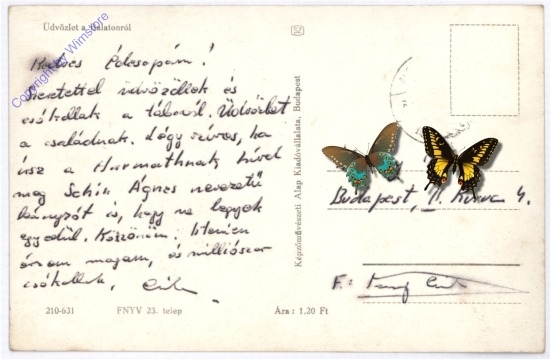 Üdvözlet a Balatonról
Copyright by Wimstore
Kedves Édesapám!
Szeretettel üdvözöllek és
csókollak a táborból. Üdvözlet
a családnak. Légy szíves, ha
írsz a Harmathnak hívd
meg Schik Ágnes nevezetű
leányzót is, hogy ne legyek
egyedül. Köszönöm. Istenien
érzem magam, és milliószor
csókollak,
Képzőművészeti Alap Kiadóvállalata, Budapest
Budapest, II. 4.
F.:
210-631 FNYV 23. telep Ára: 1,20 Ft